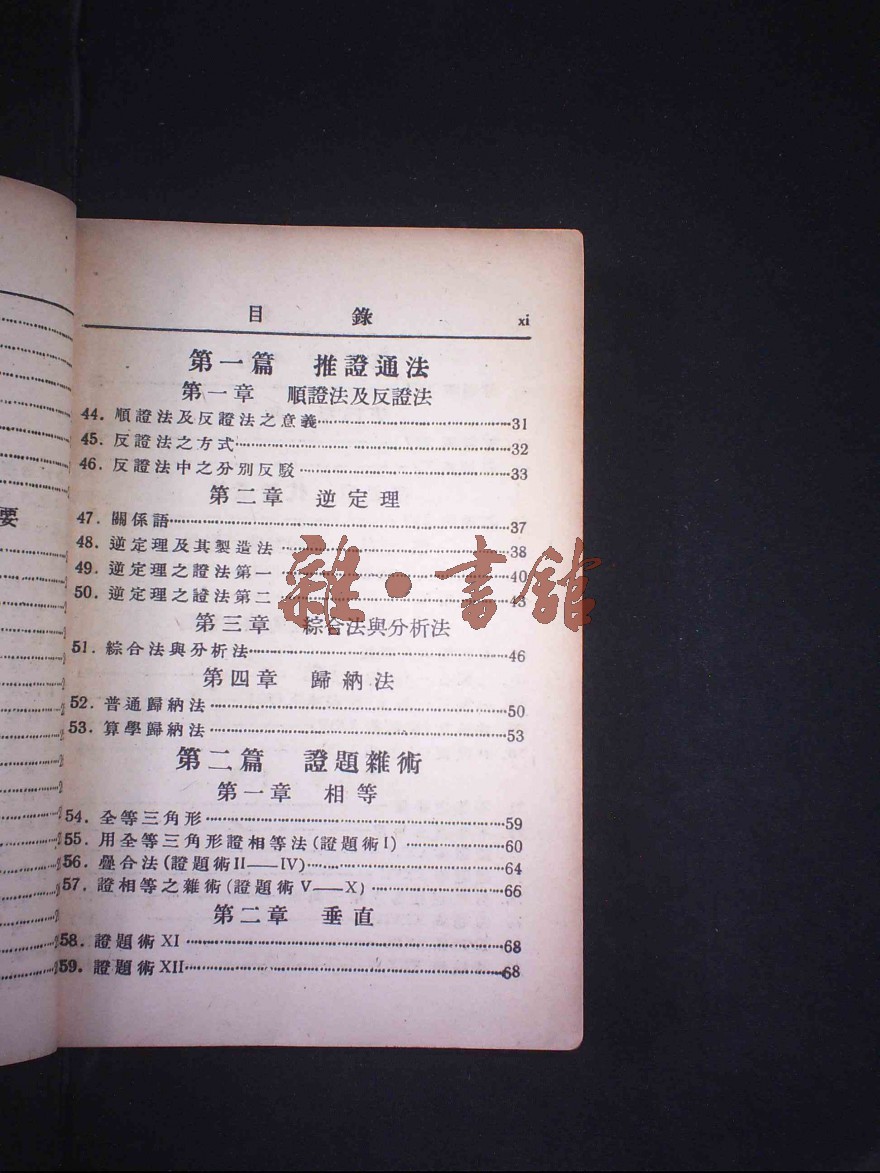 目錄 xi
第一篇 推證通法
第一章 順證法及反證法
44. 順證法及反證法之意義 31
45. 反證法之方式 32
46. 反證法中之分別反駁 33
第二章 逆定理
47. 關係語 37
48. 逆定理及其製造法 38
49. 逆定理之證法第一 40
50. 逆定理之證法第二 43
第三章 綜合法與分析法
51. 綜合法與分析法 46
第四章 歸納法
52. 普通歸納法 50
53. 算學歸納法 53
第二篇 證題雜術
第一章 相等
54. 全等三角形 59
55. 用全等三角形證相等法(證題術I) 60
56. 疊合法(證題術II——IV) 64
57. 證相等之雜術(證題術V——X) 66
第二章 垂直
58. 證題術XI 68
59. 證題術XII 68
要
雜·書館